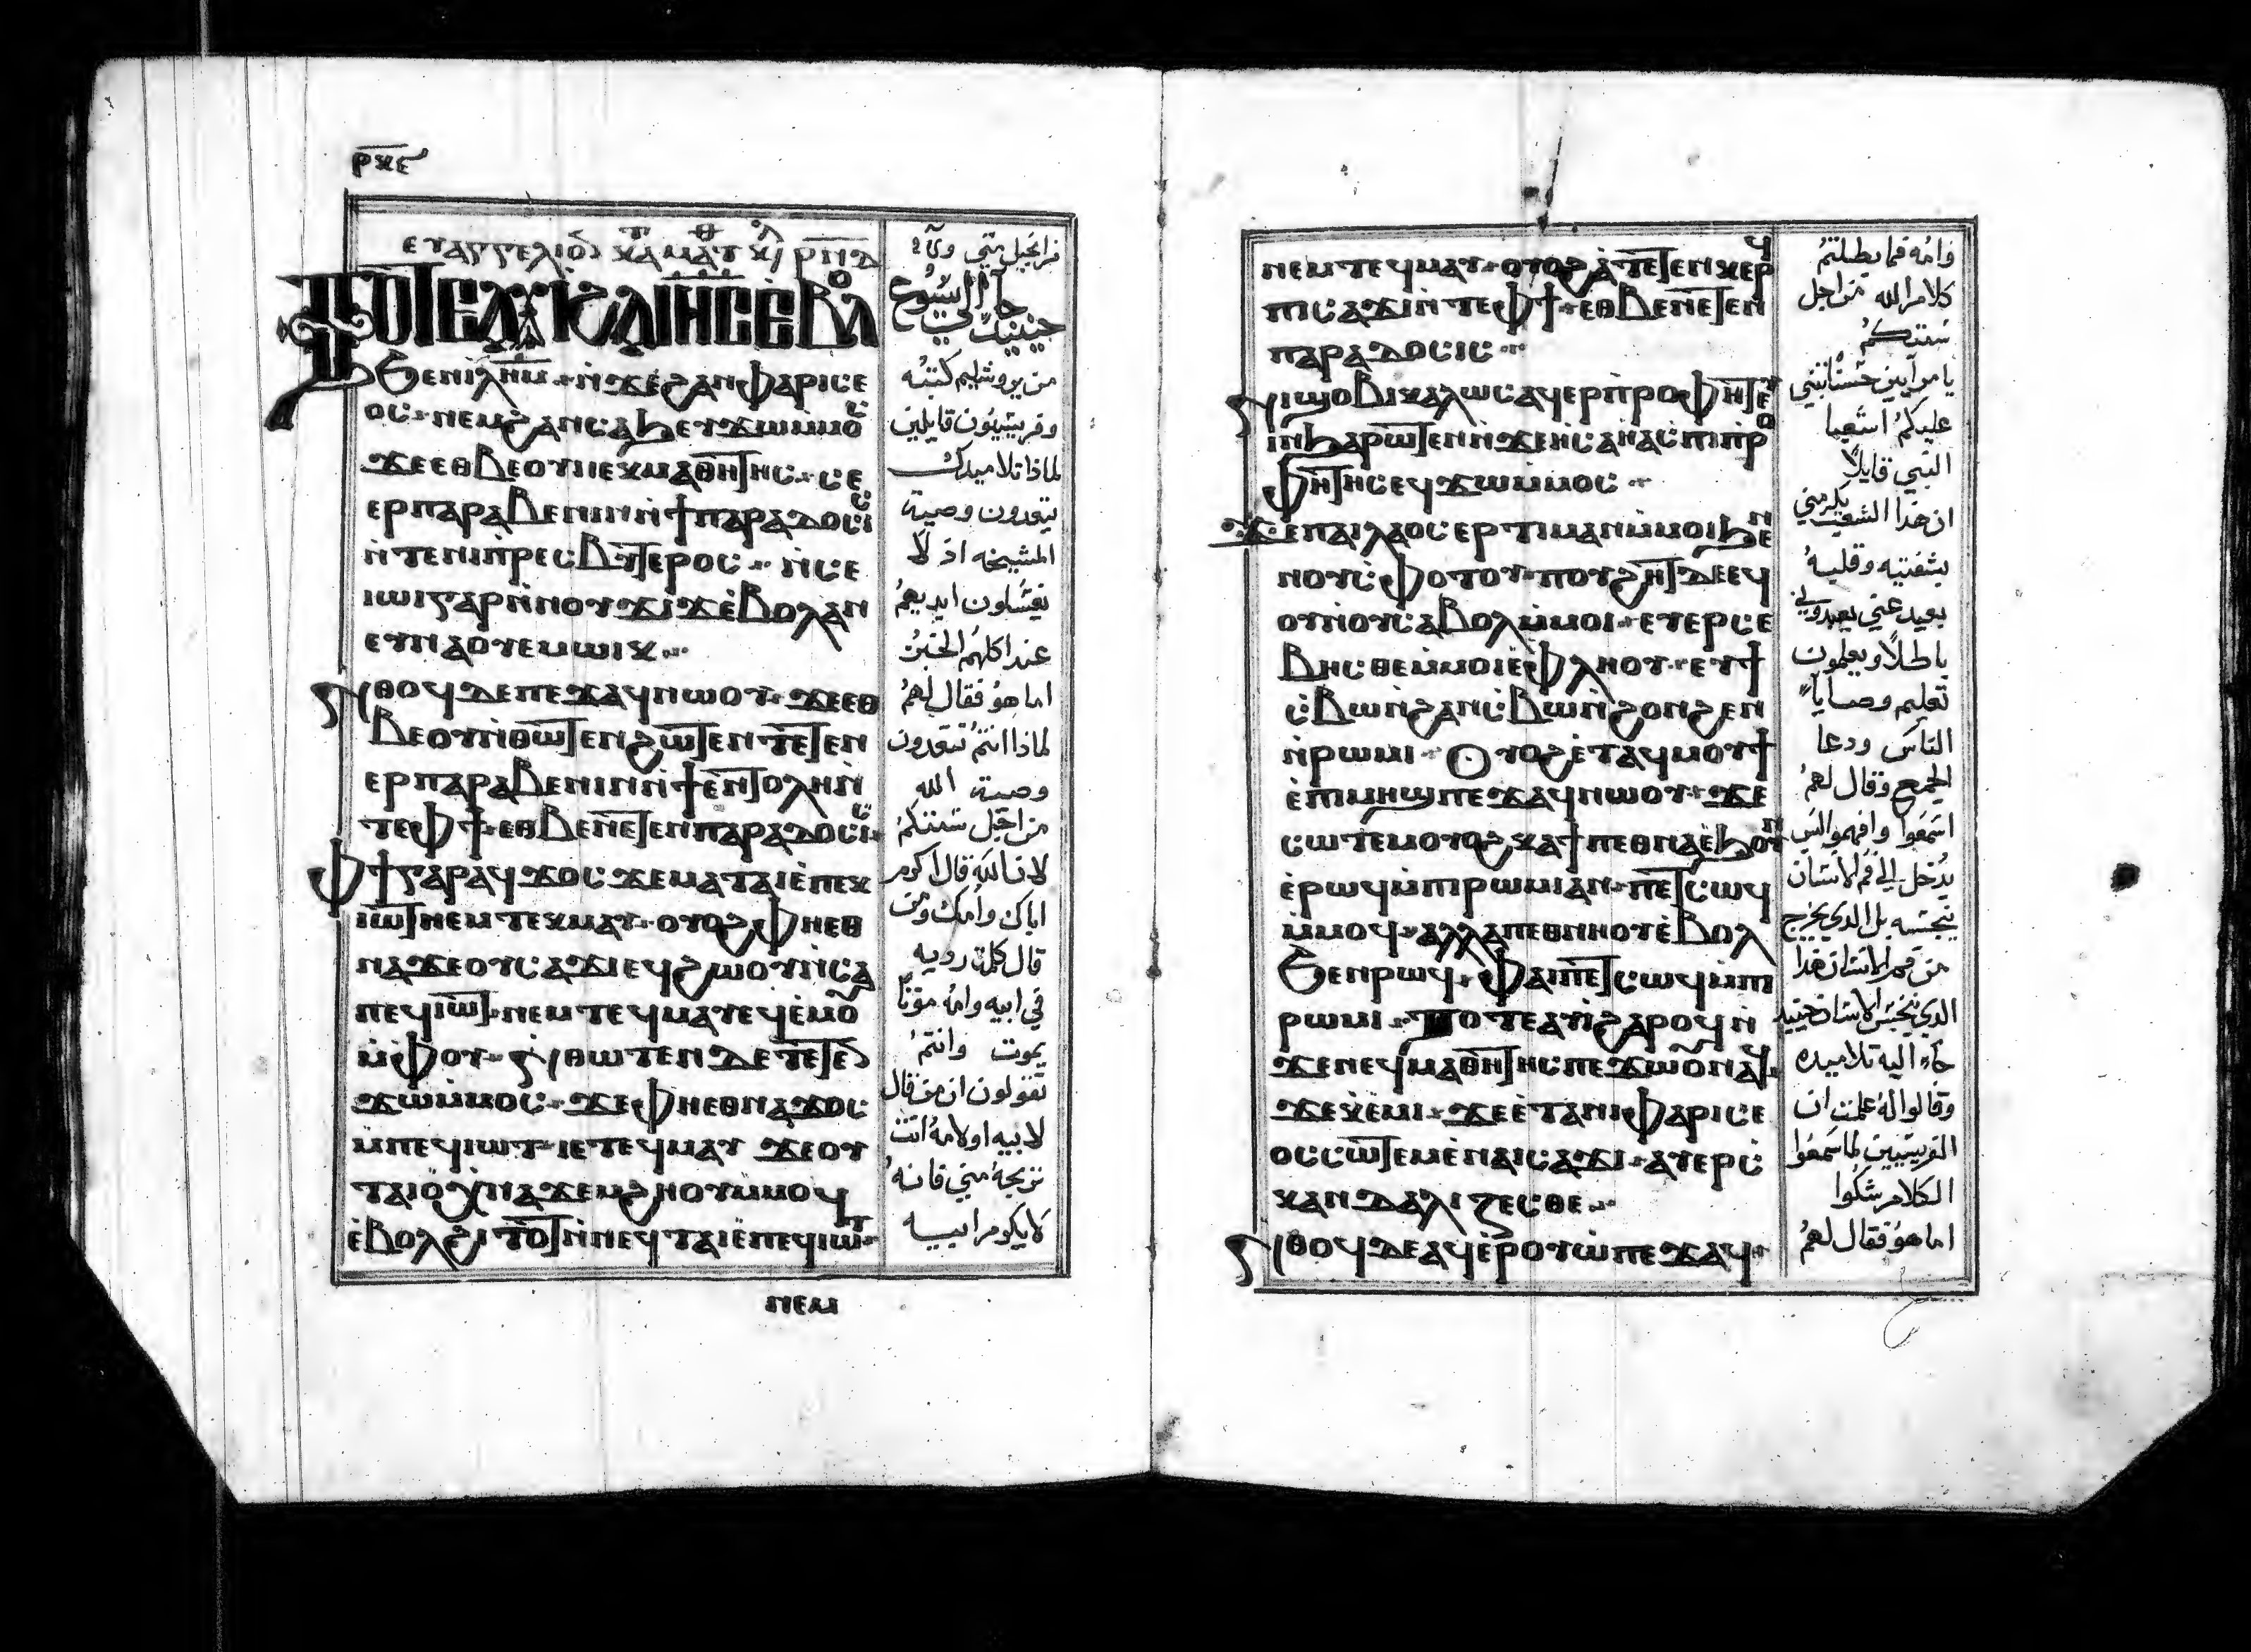 ⲣⲝⲋ
ⲉⲩⲁⲅⲅⲉⲗⲓⲟⲛ ⲕⲁ ⲙⲁⲧ
ⲧⲟⲧⲉ ⲁⲩⲓ ϩⲁ ⲓⲏⲥ ⲉⲃⲟⲗ
ϧⲉⲛⲓⲗⲏⲙ ⲛ̀ϫⲉϩⲁⲛⲫⲁⲣⲓⲥⲉ
ⲟⲥ ⲛⲉⲙϩⲁⲛⲥⲁϧⲉⲩϫⲱⲙ̀ⲙⲟⲥ
ϫⲉⲉⲑⲃⲉⲟⲩⲛⲉⲕⲙⲁⲑⲏⲧⲏⲥ ⲥⲉ
ⲉⲣⲡⲁⲣⲁⲃⲉⲛⲓⲛⲛ̀ϯⲡⲁⲣⲁⲇⲟⲥⲓⲥ
ⲛ̀ⲧⲉⲛⲓⲡ̀ⲣⲉⲥⲃⲩⲧⲉⲣⲟⲥ ⲛ̀ⲥⲉ
ⲓⲱⲓⲅⲁⲣⲛ̀ⲛⲟⲩϫⲓϫⲉ̀ⲃⲟⲗⲁⲛ
ⲉⲩⲛⲁⲟⲩⲉⲙⲱⲓⲕ
ⲛ̀ⲑⲟϥⲇⲉⲡⲉϫⲁϥⲛⲱⲟⲩ ϫⲉⲉⲑ
ⲃⲉⲟⲩⲛ̀ⲑⲱⲧⲉⲛϩⲱⲧⲉⲛ ⲧⲉⲧⲉⲛ
ⲉⲣⲡⲁⲣⲁⲃⲉⲛⲓⲛⲛ̀ϯⲉ̀ⲛⲧⲟⲗⲏⲛ̀
ⲧⲉⲫϯ ⲉⲑⲃⲉⲛⲉⲧⲉⲛⲡⲁⲣⲁⲇⲟⲥⲓⲥ
ⲫϯⲅⲁⲣⲁϥϫⲟⲥ ϫⲉⲙⲁⲧⲁⲓⲉ̀ⲡⲉⲕ
ⲓⲱⲧ ⲛⲉⲙⲧⲉⲕⲙⲁⲩ ⲟⲩⲟϩⲫⲏⲉⲑ
ⲛⲁϫⲉⲟⲩⲥⲁϫⲓⲉϥϩⲱⲟⲩⲛ̀ⲥⲁ
ⲡⲉϥⲓⲱⲧ ⲛⲉⲙⲧⲉϥⲙⲁⲩⲉϥⲉ̀ⲙⲟⲩ
ⲙ̀ⲫⲟⲩ ⲛ̀ⲑⲱⲧⲉⲛⲇⲉⲧⲉⲧⲉⲛ
ϫⲱⲙ̀ⲙⲟⲥ ϫⲉⲫⲏⲉⲑⲛⲁϫⲟⲥ
ⲙⲡⲉϥⲓⲱⲧ ⲓⲉⲧⲉϥⲙⲁⲩ ϫⲉⲟⲩ
ⲧⲁⲓⲟ ⲭ̀ⲛⲁϫⲉⲙϩⲏⲟⲩⲙ̀ⲙⲟϥ
ⲉ̀ⲃⲟⲗϩⲓⲧⲟⲧ ⲛ̀ⲛⲉϥⲧⲁⲓⲉ̀ⲡⲉϥⲓⲱⲧ
ⲛⲉⲙ
من انجيل متي
حينيذ جا الي يسوع
من يروشليم كتبه
وفريسيون قايلين
لماذا تلاميدك
يتعدون وصية
المشيخه اذ لا
يغسلون ايديهم
عند اكلهم الخبز
اما هو فقال لهم
لماذا انتم تتعدون
وصية الله
من اجل سنتكم
لان الله قال اكرم
اباك وامك ومن
قال كلمة رديه
في ابيه وامه موتا
يموت وانتم
تقولون ان من قال
لابيه او لامه
تربحه مني فانه
لا يكرم ابيه
ⲛⲉⲙⲧⲉϥⲙⲁⲩ ⲟⲩⲟϩⲁ̀ⲧⲉⲧⲉⲛⲕⲉⲣϥ
ⲡⲥⲁϫⲓⲛ̀ⲧⲉⲫϯ ⲉⲑⲃⲉⲛⲉⲧⲉⲛ
ⲡⲁⲣⲁⲇⲟⲥⲓⲥ
ⲛⲓϣⲟⲃⲓⲕⲁⲗⲱⲥⲁϥⲉⲣⲡ̀ⲣⲟⲫⲏⲧⲉ
ⲓⲛϧⲁⲣⲱⲧⲉⲛⲛ̀ϫⲉⲏⲥⲁⲏⲁⲥⲡⲓⲡ̀ⲣⲟ
ⲫⲏⲧⲏⲥⲉϥϫⲱⲙ̀ⲙⲟⲥ
ϫⲉⲡⲁⲓⲗⲁⲟⲥⲉⲣⲧⲓⲙⲁⲛⲙ̀ⲙⲟⲓϧⲉⲛ
ⲛⲟⲩⲥ̀ⲫⲟⲧⲟⲩ ⲡⲟⲩϩⲏⲧⲇⲉⲉϥ
ⲟⲩⲏⲟⲩⲥⲁⲃⲟⲗⲙ̀ⲙⲟⲓ ⲉⲩⲉⲣⲥⲉ
ⲃⲏⲥⲑⲉⲙ̀ⲙⲟⲓⲉ̀ⲫⲗⲏⲟⲩ ⲉⲩϯ
ⲥ̀ⲃⲱⲛ̀ϩⲁⲛⲥ̀ⲃⲱⲛ̀ϩⲟⲛϩⲉⲛ
ⲛ̀ⲣⲱⲙⲓ ⲟⲩⲟϩⲉ̀ⲧⲁϥⲙⲟⲩϯ
ⲉ̀ⲡⲓⲙⲏϣⲡⲉϫⲁϥⲛⲱⲟⲩ ϫⲉ
ⲥⲱⲧⲉⲙⲟⲩⲟϩⲕⲁϯⲡⲉⲑⲛⲁⲉ̀ϧⲟⲩⲛ
ⲉ̀ⲣⲱϥⲙ̀ⲡⲓⲣⲱⲙⲓⲁⲛ ⲡⲉⲧⲥⲱϥ
ⲙ̀ⲙⲟϥ ⲁⲗⲗⲁⲡⲉⲑⲛⲏⲟⲩⲉ̀ⲃⲟⲗ
ϧⲉⲛⲣⲱϥ ⲫⲁⲓⲡⲉⲧⲥⲱϥⲙ̀ⲡⲓ
ⲣⲱⲙⲓ ⲧⲟⲧⲉⲁⲩⲓ̀ϩⲁⲣⲟϥⲛ̀
ϫⲉⲛⲉϥⲙⲁⲑⲏⲧⲏⲥⲡⲉϫⲱⲟⲩⲛⲁϥ
ϫⲉⲕⲉ̀ⲙⲓ ϫⲉⲉ̀ⲧⲁⲛⲓⲫⲁⲣⲓⲥⲉ
ⲟⲥⲥⲱⲧⲉⲙⲉ̀ⲛⲁⲓⲥⲁϫⲓ ⲁⲩⲉⲣⲥ̀
ⲕⲁⲛⲇⲁⲗⲓⲍⲉⲥⲑⲉ
ⲛ̀ⲑⲟϥⲇⲉⲁϥⲉ̀ⲣⲟⲩⲱ̀ⲡⲉϫⲁϥ
وامه فما بطلتم
كلام الله من اجل
سنتكم
يا مرآيين حسنا تنبي
عليكم اشعيا
النبي قايلا
ان هذا الشعب يكرمني
بشفتيه وقلبه
بعيد عني يعبدوني
باطلا ويعلمون
تعليم وصايا
الناس ودعا
الجمع وقال لهم
اسمعوا وافهموا ليس
يدخل الي فم الانسان
ينجسه بل الذي يخرج
من فم الانسان هذا
الذي ينجس الانسان حينيذ
جاء اليه تلاميده
وقالوا له علمت ان
الفريسيين لما سمعوا
الكلام شكوا
اما هو فقال لهم